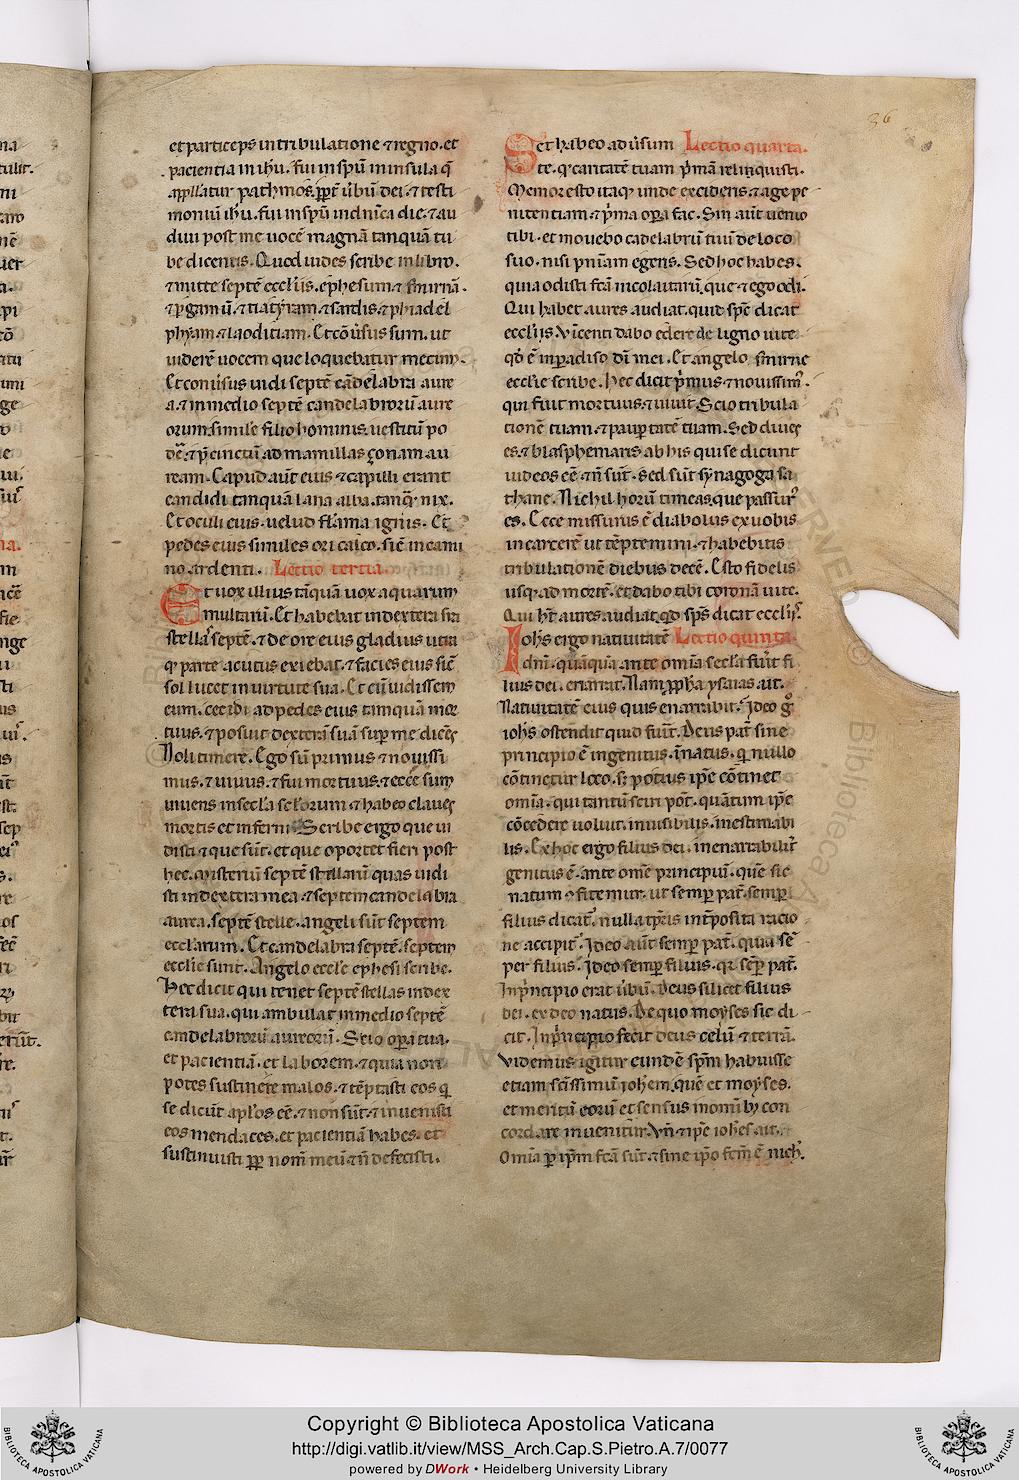 36
et particeps̄ in tribulatione ⁊ regno. et
pacientia in ih̄u. fui in spū in insula q̄
appll̄atur pathmos. ꝓpt̄ ūbū dei. ⁊ testi
moniū ih̄u. fui in spū in dn̄ica die. ⁊ au
diui post me uocē magnā tanquā tu
be dicentis. Quod uides scribe in libro.
⁊ mitte septē eccl̄iis. ephesum ⁊ smirnā.
⁊ ꝑgamū. ⁊ tiatyram. ⁊ sardis. ⁊ phiadel
phyam. ⁊ laoditiam. Et cōūsus sum. ut
uiderē uocem que loquebatur mecum.
Et conūsus uidi septē cādelabra aure
a. ⁊ in medio septē candelabrorū aure
orum. simile filio hominis. uestitū po
dē. ⁊ p̄cinctū ad mamillas çonam au
ream. Capud aūt eius ⁊ capilli erant
candidi tanquā lana alba. tanq̄ nix.
Et oculi eius. uelud flāma ignis. Et
pedes eius similes ori calco. sic̄ in cami
no ardenti. Lectio tertia.
Et uox illius tāquā uox aquarum
multarū. Et habebat in dextera sua
stellas septē. ⁊ de ore eius gladius utra
q; parte acutus exiebat. ⁊ facies eius sic̄
sol lucet in uirtute sua. Et cū uidissem
eum. cecidi ad pedes eius tanquā mor
tuus. ⁊ posuit dexterā suā sup me dicēs
Noli timere. Ego sū primus ⁊ nouissi
mus. ⁊ uiuus. ⁊ fui mortuus. ⁊ ecce sum
uiuens in secl̄a scl̄orum ⁊ habeo claues
mortis et inferni. Scribe ergo que ui
disti ⁊ que sūt. et que oportet fieri post
hec. Misteriū septē stellarū quas uidi
sti in dextera mea. ⁊ septem candelabra
aurea. septē stelle. angeli sūt septem
eccl̄arum. Et candelabra septē. septem
eccl̄ie sunt. Angelo eccl̄e ephesi scribe.
Hec dicit qui tenet septē stellas in dex
tera sua. qui ambulat in medio septē
candelabrorū aureorū. Scio oꝑa tua.
et pacientiā. et laborem. ⁊ quia non
potes sustinere malos. ⁊ tēptasti eos q̄
se dicūt apl̄os eē. ⁊ non sūt. ⁊ inuenisti
eos mendaces. et pacientiā habes. et
sustinuisti ꝓp̄ nom̄ meū. ⁊ n̄ defecisti.
Set habeo adūsum Lectio quarta.
te. q; caritatē tuam p̄mā relinquisti.
Memor esto itaq; unde excideris. ⁊ age pe
nitentiam. ⁊ p̄ma oꝑa fac. Sin aūt uenio
tibi. et mouebo cādelabrū tuū de loco
suo. nisi pn̄iam egeris. Sed hoc habes.
quia odisti fc̄ā nicolaitarū. que ⁊ ego odi.
Qui habet aures audiat. quid spc̄ dicat
eccl̄iis. Vincenti dabo edere de ligno uite
qd̄ ē in ꝑadiso dī mei. Et angelo smirne
eccl̄ie scribe. Hec dicit p̄mus ⁊ nouissim᷒.
qui fuit mortuus. ⁊ uiuit. Scio tribula
tionē tuam. ⁊ pauꝑtatē tuam. Sed diues
es. ⁊ blasphemaris ab his qui se dicunt
iudeos eē. ⁊ n̄ sūt. Sed sūt synagoga sa
thane. Nichil horū timeas. que passur᷒
es. Ecce missurus ē diabolus ex uobis
in carcerē ut tēptemini. ⁊ habebitis
tribulationē diebus decē. Esto fidelis
usq; ad mortē. et dabo tibi coronā uite.
Qui h̄t aures audiat. qd̄ sps̄ dicat eccl̄iis.
Ioh̄s ergo natiuitatē Lectio quinta.
dn̄i. quāquā ante omīa secl̄a fuūt fi
lius dei. enarrat. Nam ꝓph̄a ysaias ait.
Natiuitatē eius quis enarrabit. Ideo g̊
ioh̄s ostendit quid fuūt. Deus pat̄ sine
principio ē ingenitus. īnatus. q̄ nullo
cōtinetur loco. s; potius ip̄e cōtinet
omīa. qui tantū sciri pōt. quātum ip̄e
cōcedere uoluit. inuisibilis. inestimabi
lis. Ex hoc ergo filius dei. inenarrabilit̄
genitus ē. ante om̄e principiū. quē sic
natum ꝯfitemur. ut semꝑ pat̄. semꝑ
filius dicat̄. nulla tp̄ris int̄posita racio
ne accipit̄. Ideo aūt semꝑ pat̄. quia sē
per filius. Ideo semꝑ filius. q; sēꝑ pat̄.
In p̄ncipio erat ūbū. Deus silicet filius
dei. ex deo natus. De quo moyses sic di
cit. In p̄ncipio fecit deus celū ⁊ terrā.
Videmus igitur eundē spm̄ habuisse
etiam sc̄issimū ioh̄em. quē et moyses.
et meritū eorū et sensus in omīb; con
cordare inuenitur. Vn̄ ⁊ ip̄e ioh̄es ait.
Omīa ꝑ ip̄m fc̄ā sūt. ⁊ sine ip̄o fcm̄ ē nich̄.
Copyright © Biblioteca Apostolica Vaticana
http://digi.vatlib.it/view/MSS_Arch.Cap.S.Pietro.A.7/0077
powered by DWork • Heidelberg University Library
BIBLIOTECA APOSTOLICA VATICANA
BIBLIOTECA APOSTOLICA VATICANA